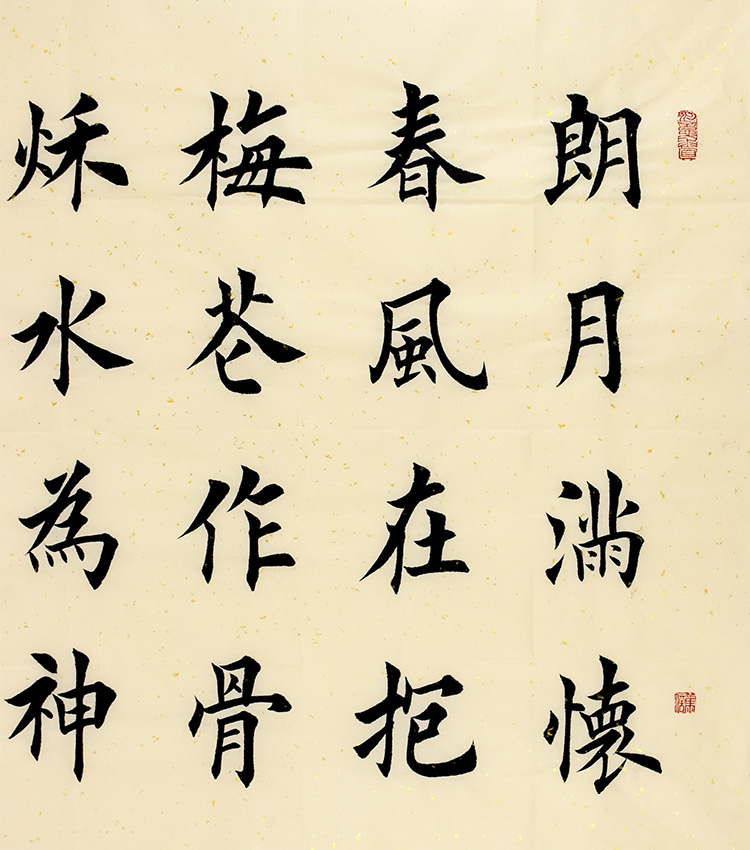 朗月滿懷
春風在抱
梅花作骨
秌水為神